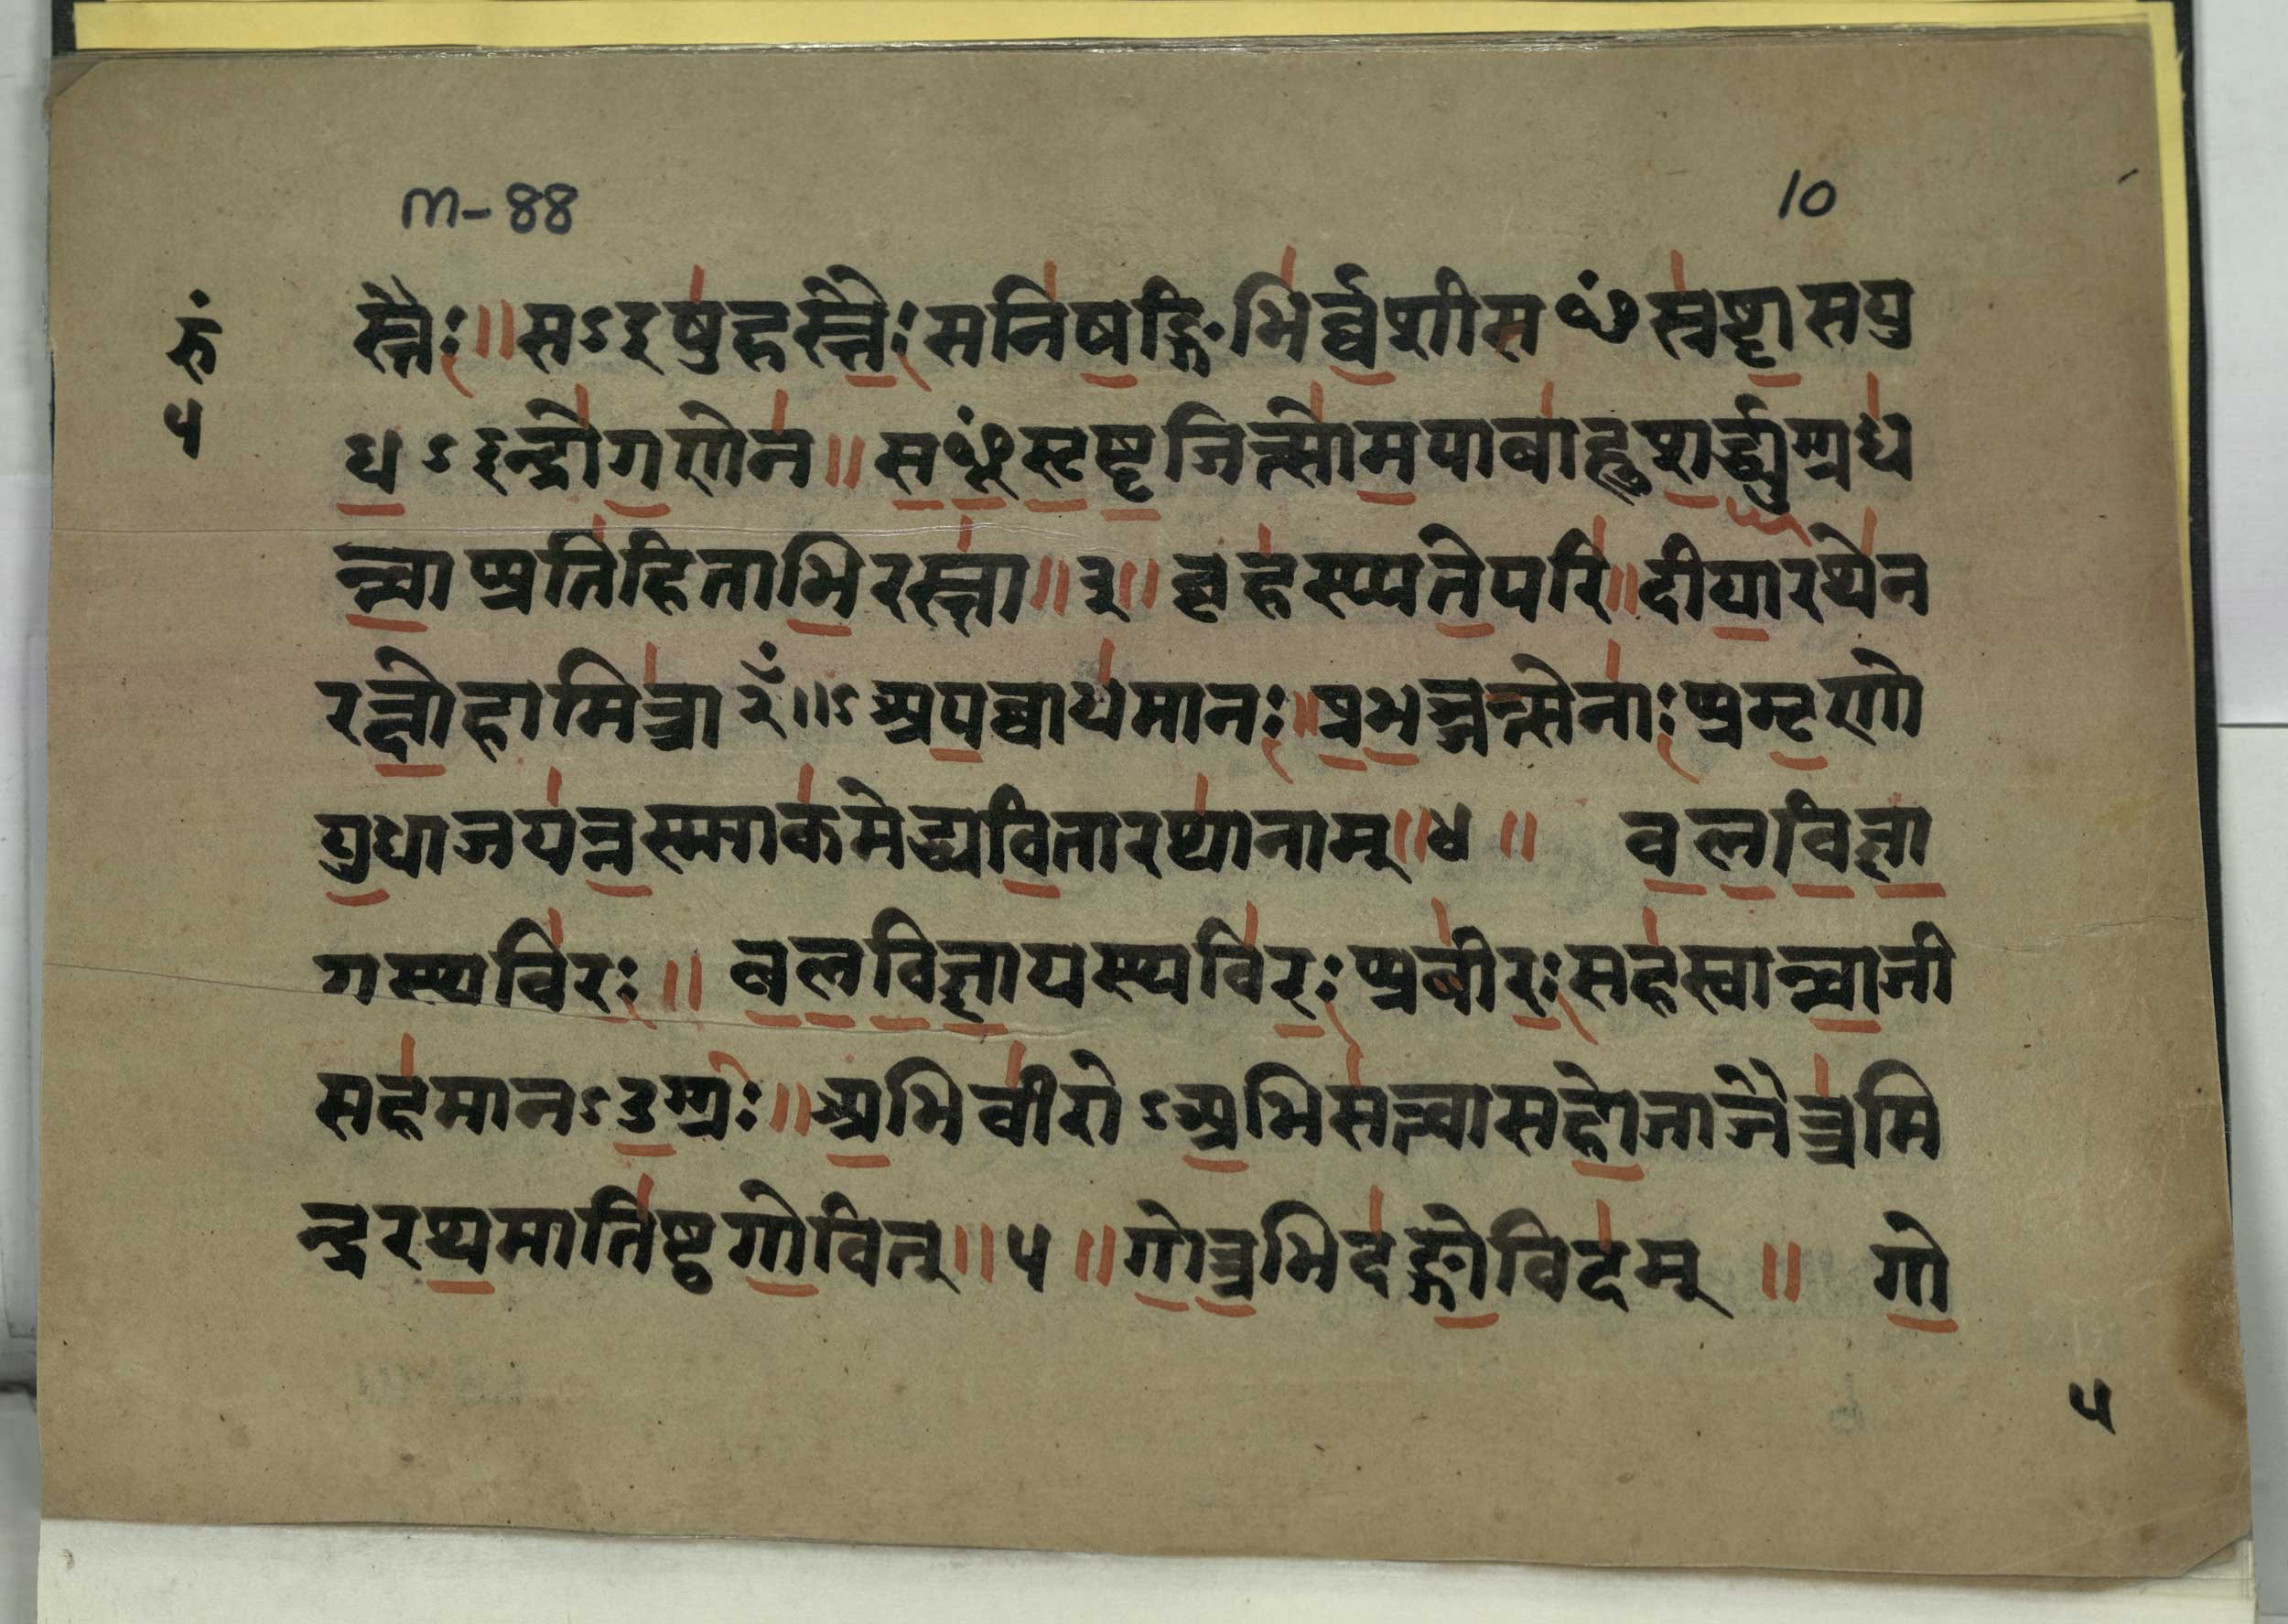 m-88
10
रुं
५
स्तैः॥सऽइषुहस्तैः सनिषङ्गिभिर्व्वशीसꣳस्रष्टासयु
धऽइन्द्रोगणेन॥सꣳसृष्टजित्सोमपाबाहुशर्द्ध्युग्रध
न्वाप्रतिहिताभिरस्ता॥३॥बृहस्प्पतेपरि॥दीयारथेन
रक्षोहामित्राँ२॥ऽअपबाधमानः॥प्रभञ्जन्त्सेनाः प्रमृणो
युधाजयन्नस्माकमेद्ध्यवितारथानाम्॥४॥ बलविज्ञा
यस्थविरः॥ बलविज्ञायस्थविरः प्रवीरः सहस्वान्वाजी
सहमानऽउग्रः॥अभिवीरोऽअभिसत्वासहोजाजैत्रमि
न्द्ररथमातिष्ठगोवित्॥५॥गोत्रभिदङ्गोविदम्॥ गो
५